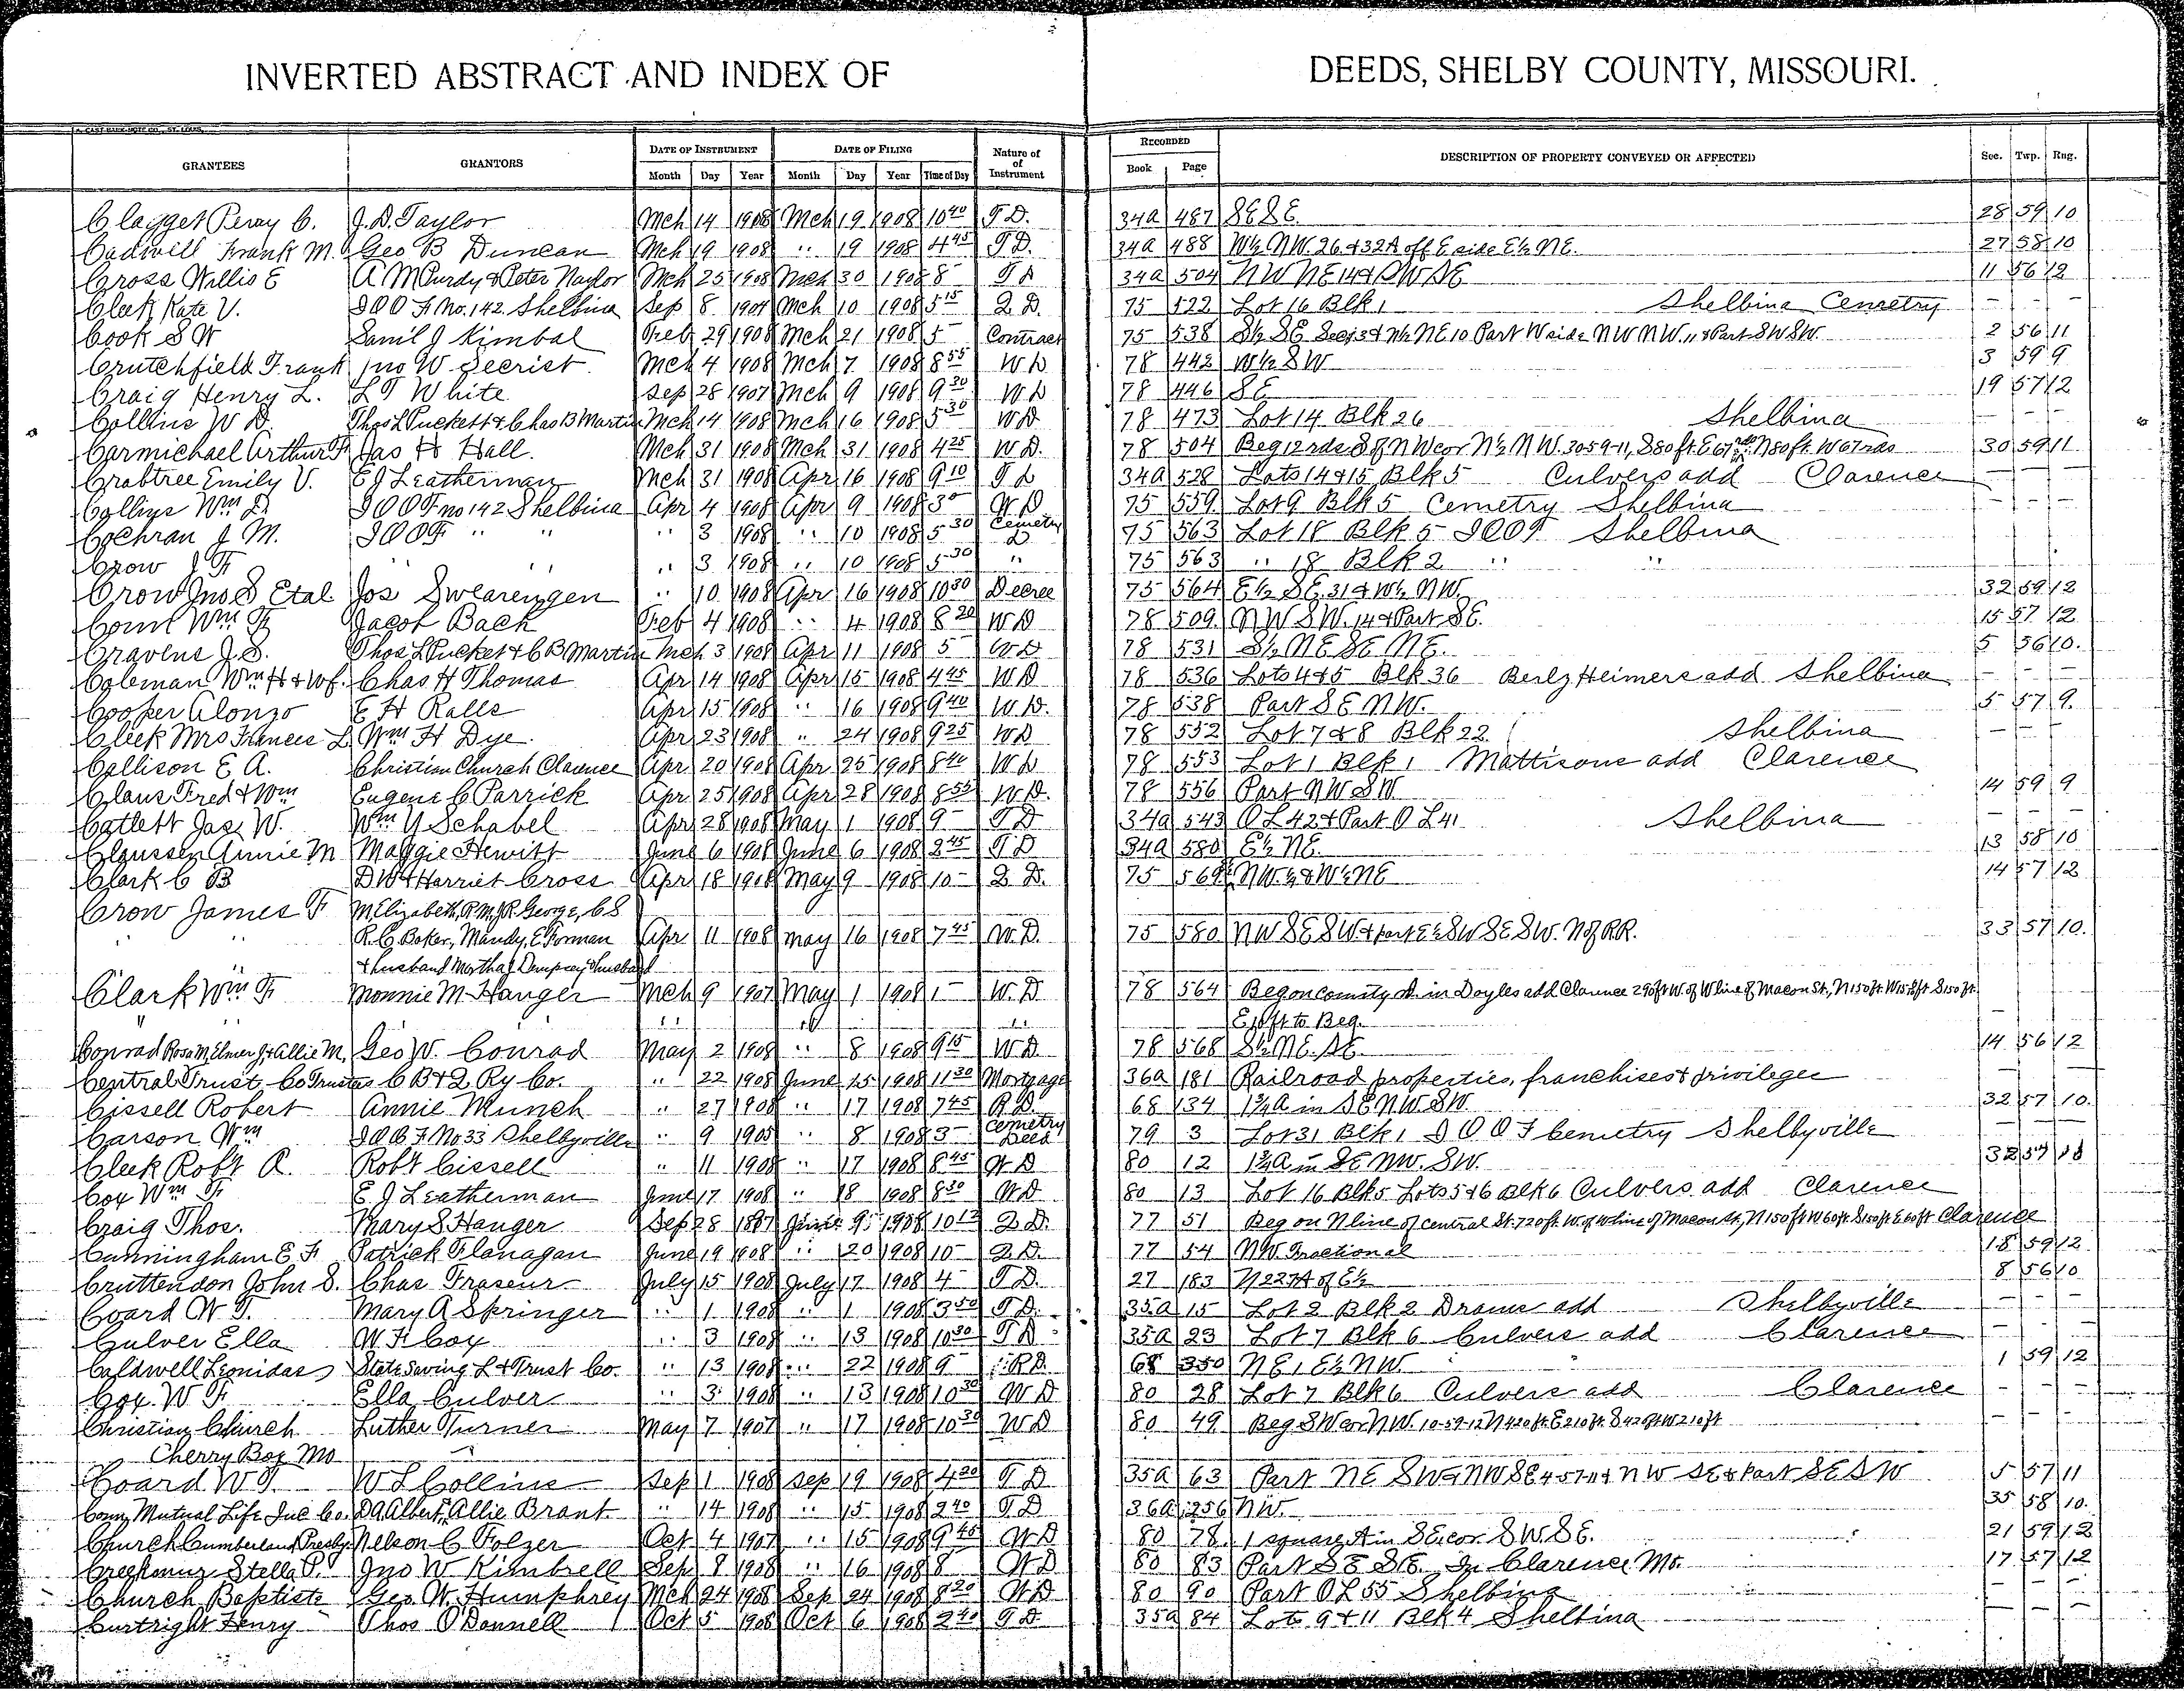 INVERTED ABSTRACT AND INDEX OF DEEDS, SHELBY COUNTY, MISSOURI.
GRANTEES GRANTORS DATE OF INSTRUMENT DATE OF FILING Nature of of Instrument RECORDED DESCRIPTION OF PROPERTY CONVEYED OR AFFECTED Sec. Twp. Rng.
Month Day Year Month Day Year Time of Day Book Page
Clagget Peray C. J.D. Taylor Mch 14 1908 Mch 19 1908 10 40 T D. 34a 487 SE SE. 28 59 10
Cadwill Frank M. Geo B Duncan Mch 19 1908 " 19 1908 4 45 T D. 34a 488 W½ NW. 26 & 32A off E side E½ NE. 27 58 10
Cross Willis E A McCurdy & Peter Naylor Mch 25 1908 Mch 30 1908 8 T D 34a 504 NW NE 14 & SW SE 11 56 12
Cleek Kate V. IOOF No. 142 Shelbina Sep 8 1907 Mch 10 1908 5 15 Q D. 75 522 Lot 16 Blk 1 Shelbina Cemetry – – –
Cook S W Saml J Kimbal Feb 29 1908 Mch 21 1908 5 Contract 75 538 S½ SE Sec 3 & N½ NE 10 Part W side NW NW. 11 & Part SW SW. 2 56 11
Crutchfield Frank Jno W Secrist Mch 4 1908 Mch 7 1908 8 55 W D 78 442 W½ SW 3 59 9
Craig Henry L. L T White Sep 28 1907 Mch 9 1908 9 30 W D 78 446 SE 19 57 12
Collins W D. Thos L Puckett & Chas B Martin Mch 14 1908 Mch 16 1908 5 30 W D 78 473 Lot 14 Blk 26 Shelbina – – –
Carmichael Arthur F Jas H Hall. Mch 31 1908 Mch 31 1908 4 25 W D. 78 504 Beg 12 rds S of NW cor N½ NW. 30 59-11, S 80 ft. E 67 rds N 80 ft. W 67 rds 30 59 11
Crabtree Emily V. E J Leatherman Mch 31 1908 Apr 16 1908 9 10 T D 34a 528 Lots 14 & 15 Blk 5 Culvers add Clarence – – –
Collins Wm D. IOOF no 142 Shelbina Apr 4 1908 Apr 9 1908 3 W D 75 559 Lot 9 Blk 5 Cemetry Shelbina – – –
Cochran J M. IOOF " " " 3 1908 " 10 1908 5 30 Cemetry D 75 563 Lot 18 Blk 5 IOOF Shelbina
Crow J F " " " 3 1908 " 10 1908 5 30 " 75 563 " 18 Blk 2 " "
Crow Jno S Etal Jos Swearengen " 10 1908 Apr 16 1908 10 30 Decree 75 564 E½ SE. 31 & W½ NW. 32 59 12
Wm Jacob Back Feb 4 1908 " 4 1908 8 20 W D 78 509 NW SW. 14 & Part SE. 15 57 12
Cravens J. S. Thos L Pucket & C B Martin Mch 3 1908 Apr 11 1908 5 W D 78 531 S½ NE SE NE. 5 56 10.
Coleman Wm H & Wf. Chas H Thomas Apr 14 1908 Apr 15 1908 4 45 W D 78 536 Lots 4 & 5 Blk 36 Berlz Heimers add Shelbina – – –
Cooper Alonzo E H Ralls Apr 15 1908 " 16 1908 9 40 W D. 78 538 Part SE NW. 5 57 9.
Cleek Mrs Frances L Wm H Dye. Apr 23 1908 " 24 1908 9 25 W D 78 552 Lot 7 & 8 Blk 22 Shelbina – – –
Collison E A. Christian Church Clarence Apr 20 1908 Apr 25 1908 8 40 W D 78 553 Lot 1 Blk 1 Mattisons add Clarence
Claus Fred & Wm Eugene C Parrick Apr 25 1908 Apr 28 1908 8 55 W D. 78 556 Part NW SW 14 59 9
Catlett Jas. W. Wm Y Schabel Apr 28 1908 May 1 1908 9 T D 34a 543 O L 42 & Part O L 41 Shelbina – – –
Claussen Annie M Maggie Hewitt June 6 1908 June 6 1908 2 45 T D 34a 580 E½ NE. 13 58 10
Clark C B D W & Harriet Cross Apr 18 1908 May 9 1908 10 Q D. 75 569 NW ¼ & W½ NE 14 57 12
Crow James F M Elizabeth, R M, J R George, C S
" " R. C. Baker, Mandy, E Forman Apr 11 1908 May 16 1908 7 45 W. D. 75 580 NW SE SW & part E½ SW SE SW. N of RR. 33 57 10.
" & husband Martha J Dempsey & husband
Clark Wm F Monnie M Hanger Mch 9 1907 May 1 1908 1 W. D 78 564 Beg on County rd. in Doyles add Clarence 290 ft W. of W line of Macon St., N 150 ft. W 158 ft S 150 ft.
" " " " E ft to Beg.
Conrad Rosa M, Elmer J, & Allie M, Geo W. Conrad May 2 1908 " 8 1908 9 15 W D 78 568 S½ NE. SE. 14 56 12
Central Trust Co Trustee C B & Q Ry Co. " 22 1908 June 15 1908 11 30 Mortgage 36a 181 Railroad properties, franchises & privileges – – –
Cissell Robert Annie Munch " 27 1908 " 17 1908 7 45 R D. 68 134 1¾ a in SE NW SW 32 57 10.
Carson Wm IOOF No 33 Shelbyville " 9 1905 " 8 1908 3 Cemetry Deed 79 3 Lot 31 Blk 1 IOOF Cemetry Shelbyville – – –
Cleek Robt R. Robt Cissell " 11 1908 " 17 1908 8 45 W D 80 12 1¾ a in SE NW. SW. 32 57 10
Cox Wm F. E. J Leatherman June 17 1908 " 18 1908 8 30 W D 80 13 Lot 16 Blk 5 Lots 5 & 6 Blk 6 Culvers add Clarence
Craig Thos. Mary S Hanger Sep 28 1887 June 9 1908 10 15 Q D. 77 51 Beg on N line of central St. 720 ft. W. of W line of Macon St, N 150 ft W 60 ft. S 150 ft E 60 ft Clarence
Cunningham E F Patrick Flanagan June 19 1908 " 20 1908 10 Q D. 77 54 NW Fractional 18 59 12
Cruttendon John S. Chas Fraseur July 15 1908 July 17 1908 4 T D. 27 183 N 227A of E½ 8 56 10
Coard W T. Mary A Springer " 1 1908 " 1 1908 3 50 T D. 35a 15 Lot 2 Blk 2 Drams add Shelbyville – – –
Culver Ella W. F Cox " 3 1908 " 13 1908 10 30 T D 35a 23 Lot 7 Blk 6 Culvers add Clarence – – –
Caldwell Leonidas State Saving L & Trust Co. " 13 1908 " 22 1908 9 R D. 68 350 NE, E½ NW 1 59 12
Cox. W F. Ella Culver " 3 1908 " 13 1908 10 30 W D 80 28 Lot 7 Blk 6 Culvers add Clarence – – –
Christian Church Luther Turner May 7 1907 " 17 1908 10 30 W D 80 49 Beg SW cor NW. 10-59-12 N 420 ft. E 210 ft. S 420 ft W 210 ft – – –
Cherry Box Mo
Coard W T. W S Collins Sep 1 1908 Sep 19 1908 4 20 T D 35a 63 Part NE SW & NW SE 4 57 11 & NW SE & Part SE SW 5 57 11
Conn, Mutual Life Ins Co. D A Albert, Allie Brant. " 14 1908 " 15 1908 2 40 T D 36a 256 NW. 35 58 10.
Church Cumberland Presby Nelson C Folzer Oct 4 1907 " 15 1908 9 45 W D 80 78 1 square A in SE cor. SW. SE. 21 59 12
Stella P. Jno W Kimbrell Sep 8 1908 " 16 1908 8 W D 80 83 Part SE SE. In Clarence Mo. 17 57 12
Church Baptist Geo W. Humphrey Mch 24 1908 Sep 24 1908 8 20 W D 80 90 Part OL 55 Shelbina – – –
Curtright Henry Thos O'Donnell Oct 5 1908 Oct 6 1908 2 40 T D 35a 84 Lots 9 & 11 Blk 4 Shelbina – – –